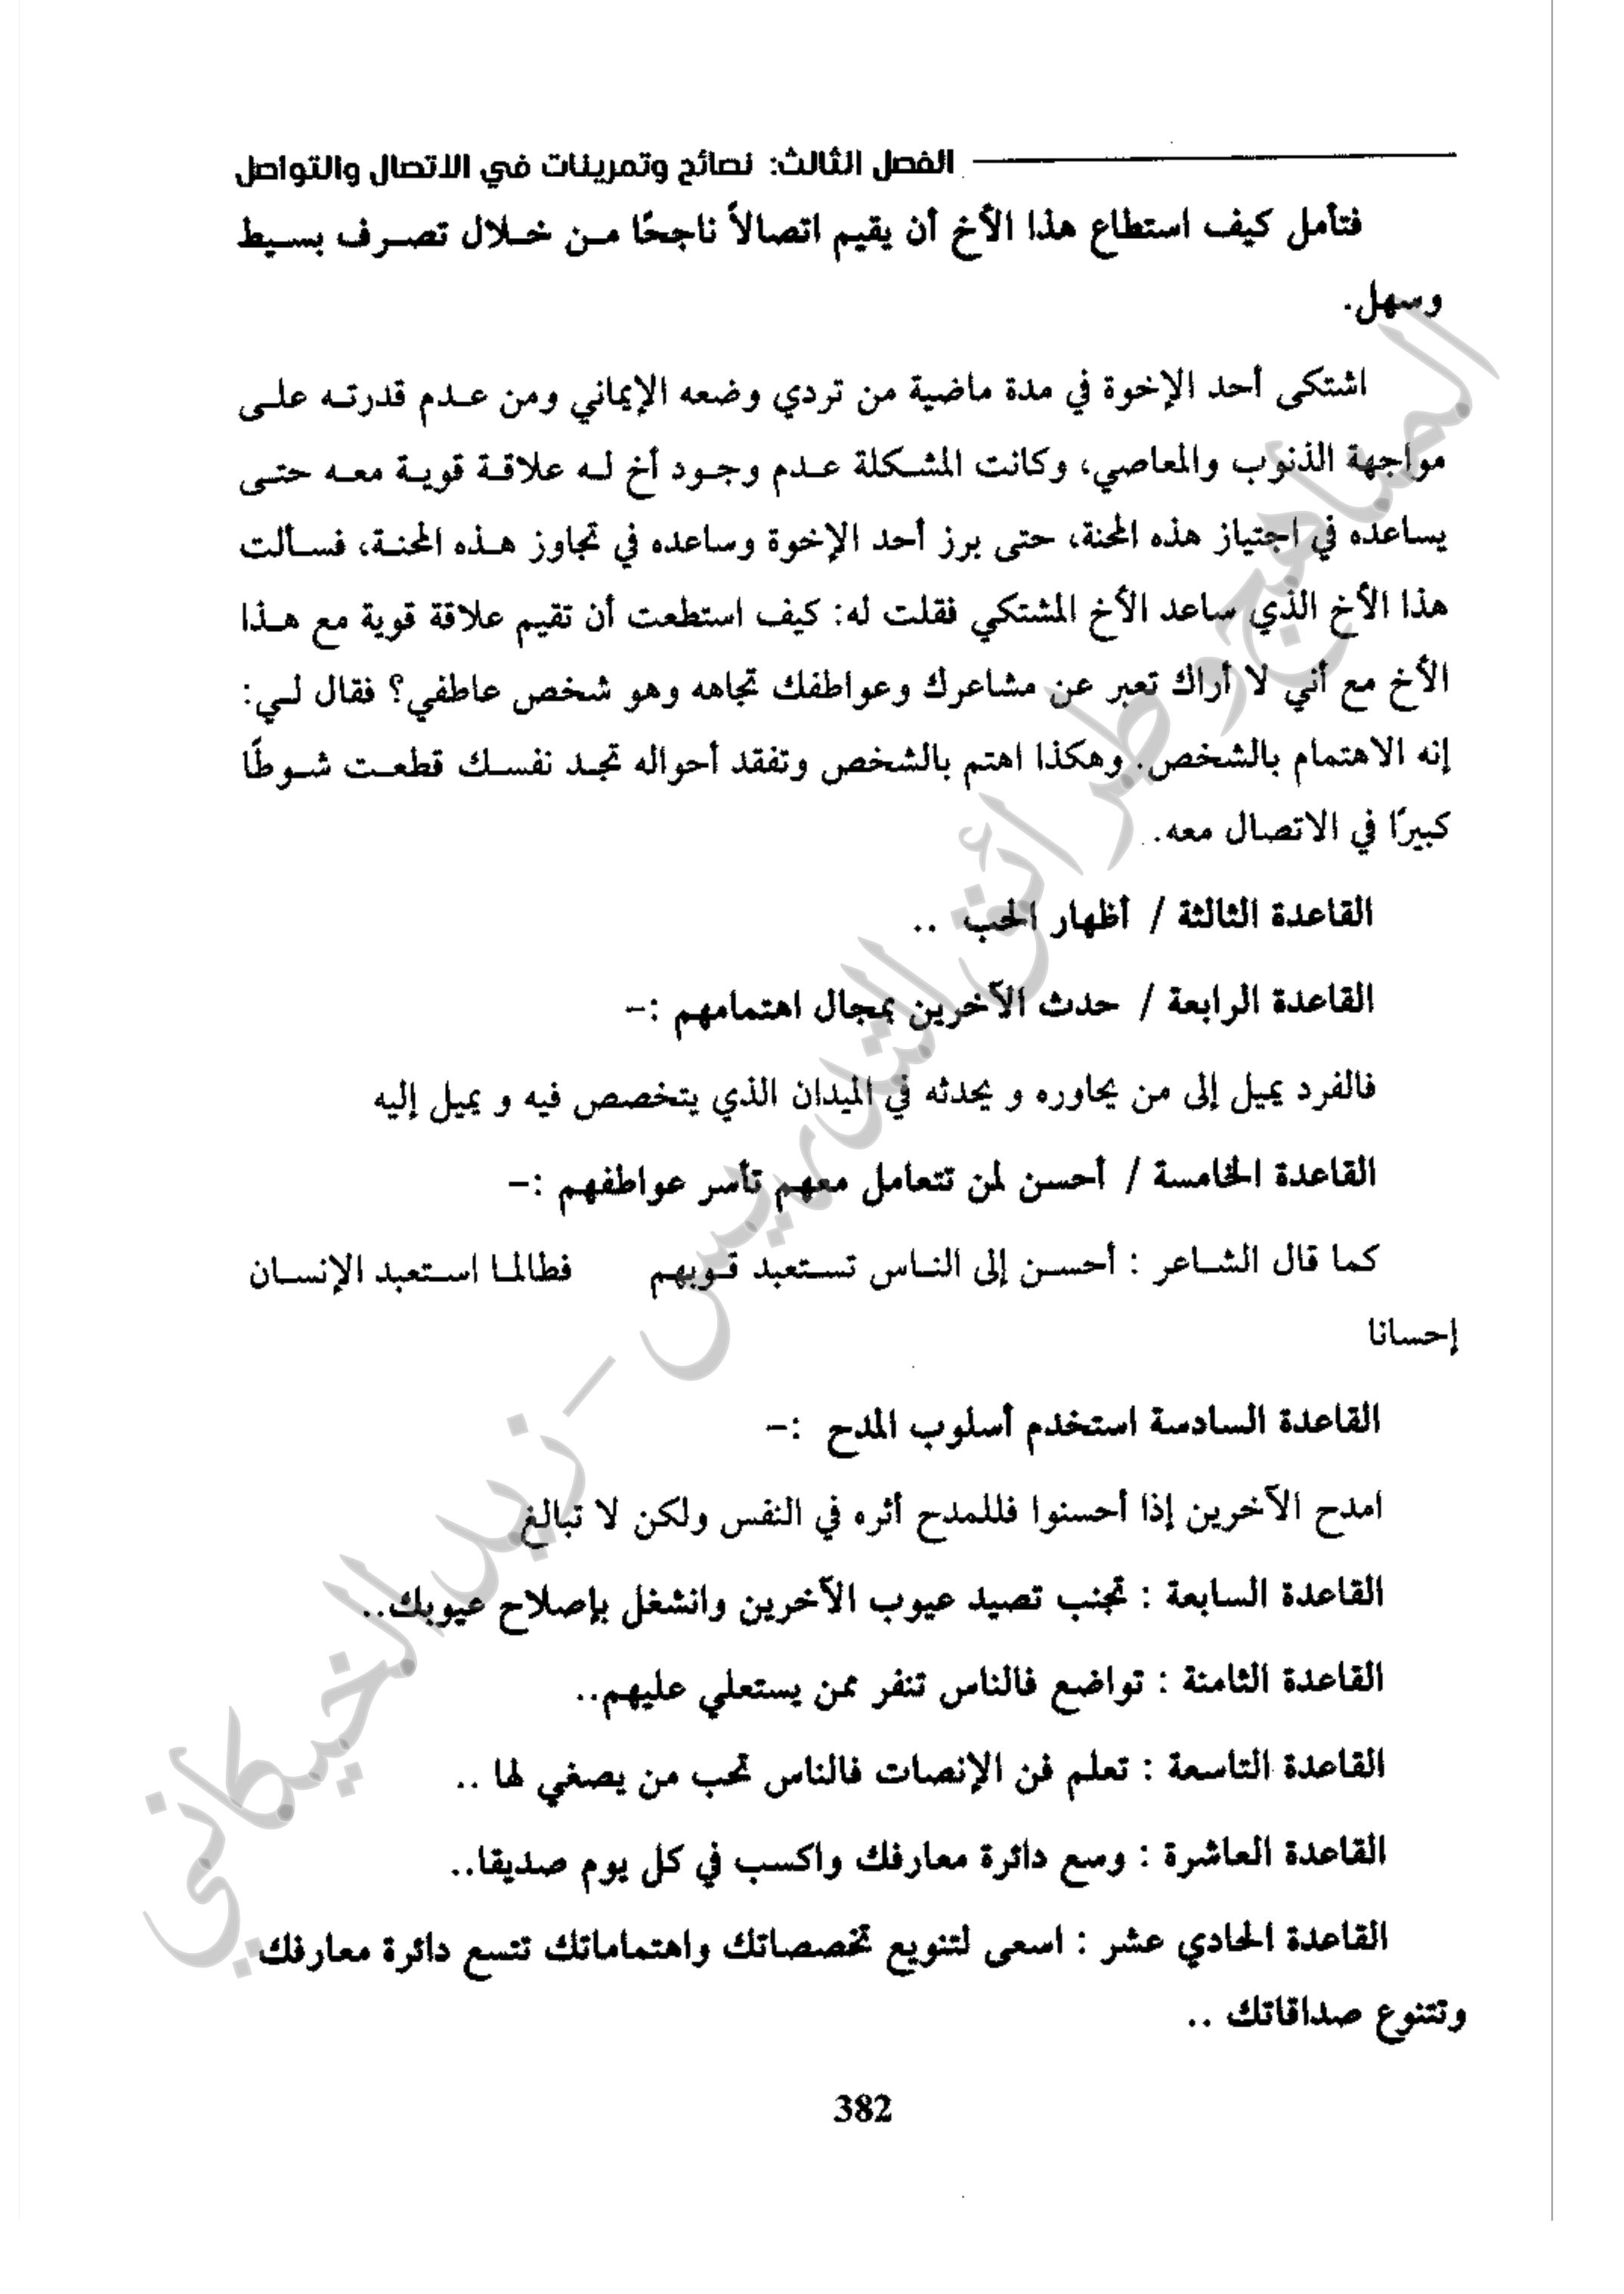 الفصل الثالث: نصائح وتمرينات في الاتصال والتواصل
فتأمل كيف استطاع هذا الأخ أن يقيم اتصالاً ناجحًا من خلال تصرف بسيط
وسهل.
اشتكى أحد الإخوة في مدة ماضية من تردي وضعه الإيماني ومن عدم قدرته على
مواجهة الذنوب والمعاصي، وكانت المشكلة عدم وجود أخ له علاقة قوية معه حتى
يساعده في اجتياز هذه المحنة، حتى برز أحد الإخوة وساعده في تجاوز هذه المحنة، فسألت
هذا الأخ الذي ساعد الأخ المشتكي فقلت له: كيف استطعت أن تقيم علاقة قوية مع هذا
الأخ مع أني لا أراك تعبر عن مشاعرك وعواطفك تجاهه وهو شخص عاطفي؟ فقال لي:
إنه الاهتمام بالشخص. وهكذا اهتم بالشخص وتفقد أحواله تجد نفسك قطعت شوطًا
كبيرًا في الاتصال معه.
القاعدة الثالثة / أظهار الحب ..
القاعدة الرابعة / حدث الآخرين بمجال اهتمامهم :–
فالفرد يميل إلى من يحاوره و يحدثه في الميدان الذي يتخصص فيه و يميل إليه
القاعدة الخامسة / أحسن لمن تتعامل معهم تأسر عواطفهم :–
كما قال الشاعر : أحسن إلى الناس تستعبد قوبهم فطالما استعبد الإنسان
إحسانا
القاعدة السادسة استخدم أسلوب المدح :–
امدح الآخرين إذا أحسنوا فللمدح أثره في النفس ولكن لا تبالغ
القاعدة السابعة : تجنب تصيد عيوب الآخرين وانشغل بإصلاح عيوبك..
القاعدة الثامنة : تواضع فالناس تنفر ممن يستعلي عليهم..
القاعدة التاسعة : تعلم فن الإنصات فالناس تحب من يصغي لها ..
القاعدة العاشرة : وسع دائرة معارفك واكسب في كل يوم صديقا..
القاعدة الحادي عشر : اسعى لتنويع تخصصاتك واهتماماتك تتسع دائرة معارفك
وتتنوع صداقاتك ..
382
المناهج وطرائق التدريس – زيد الخيكاني